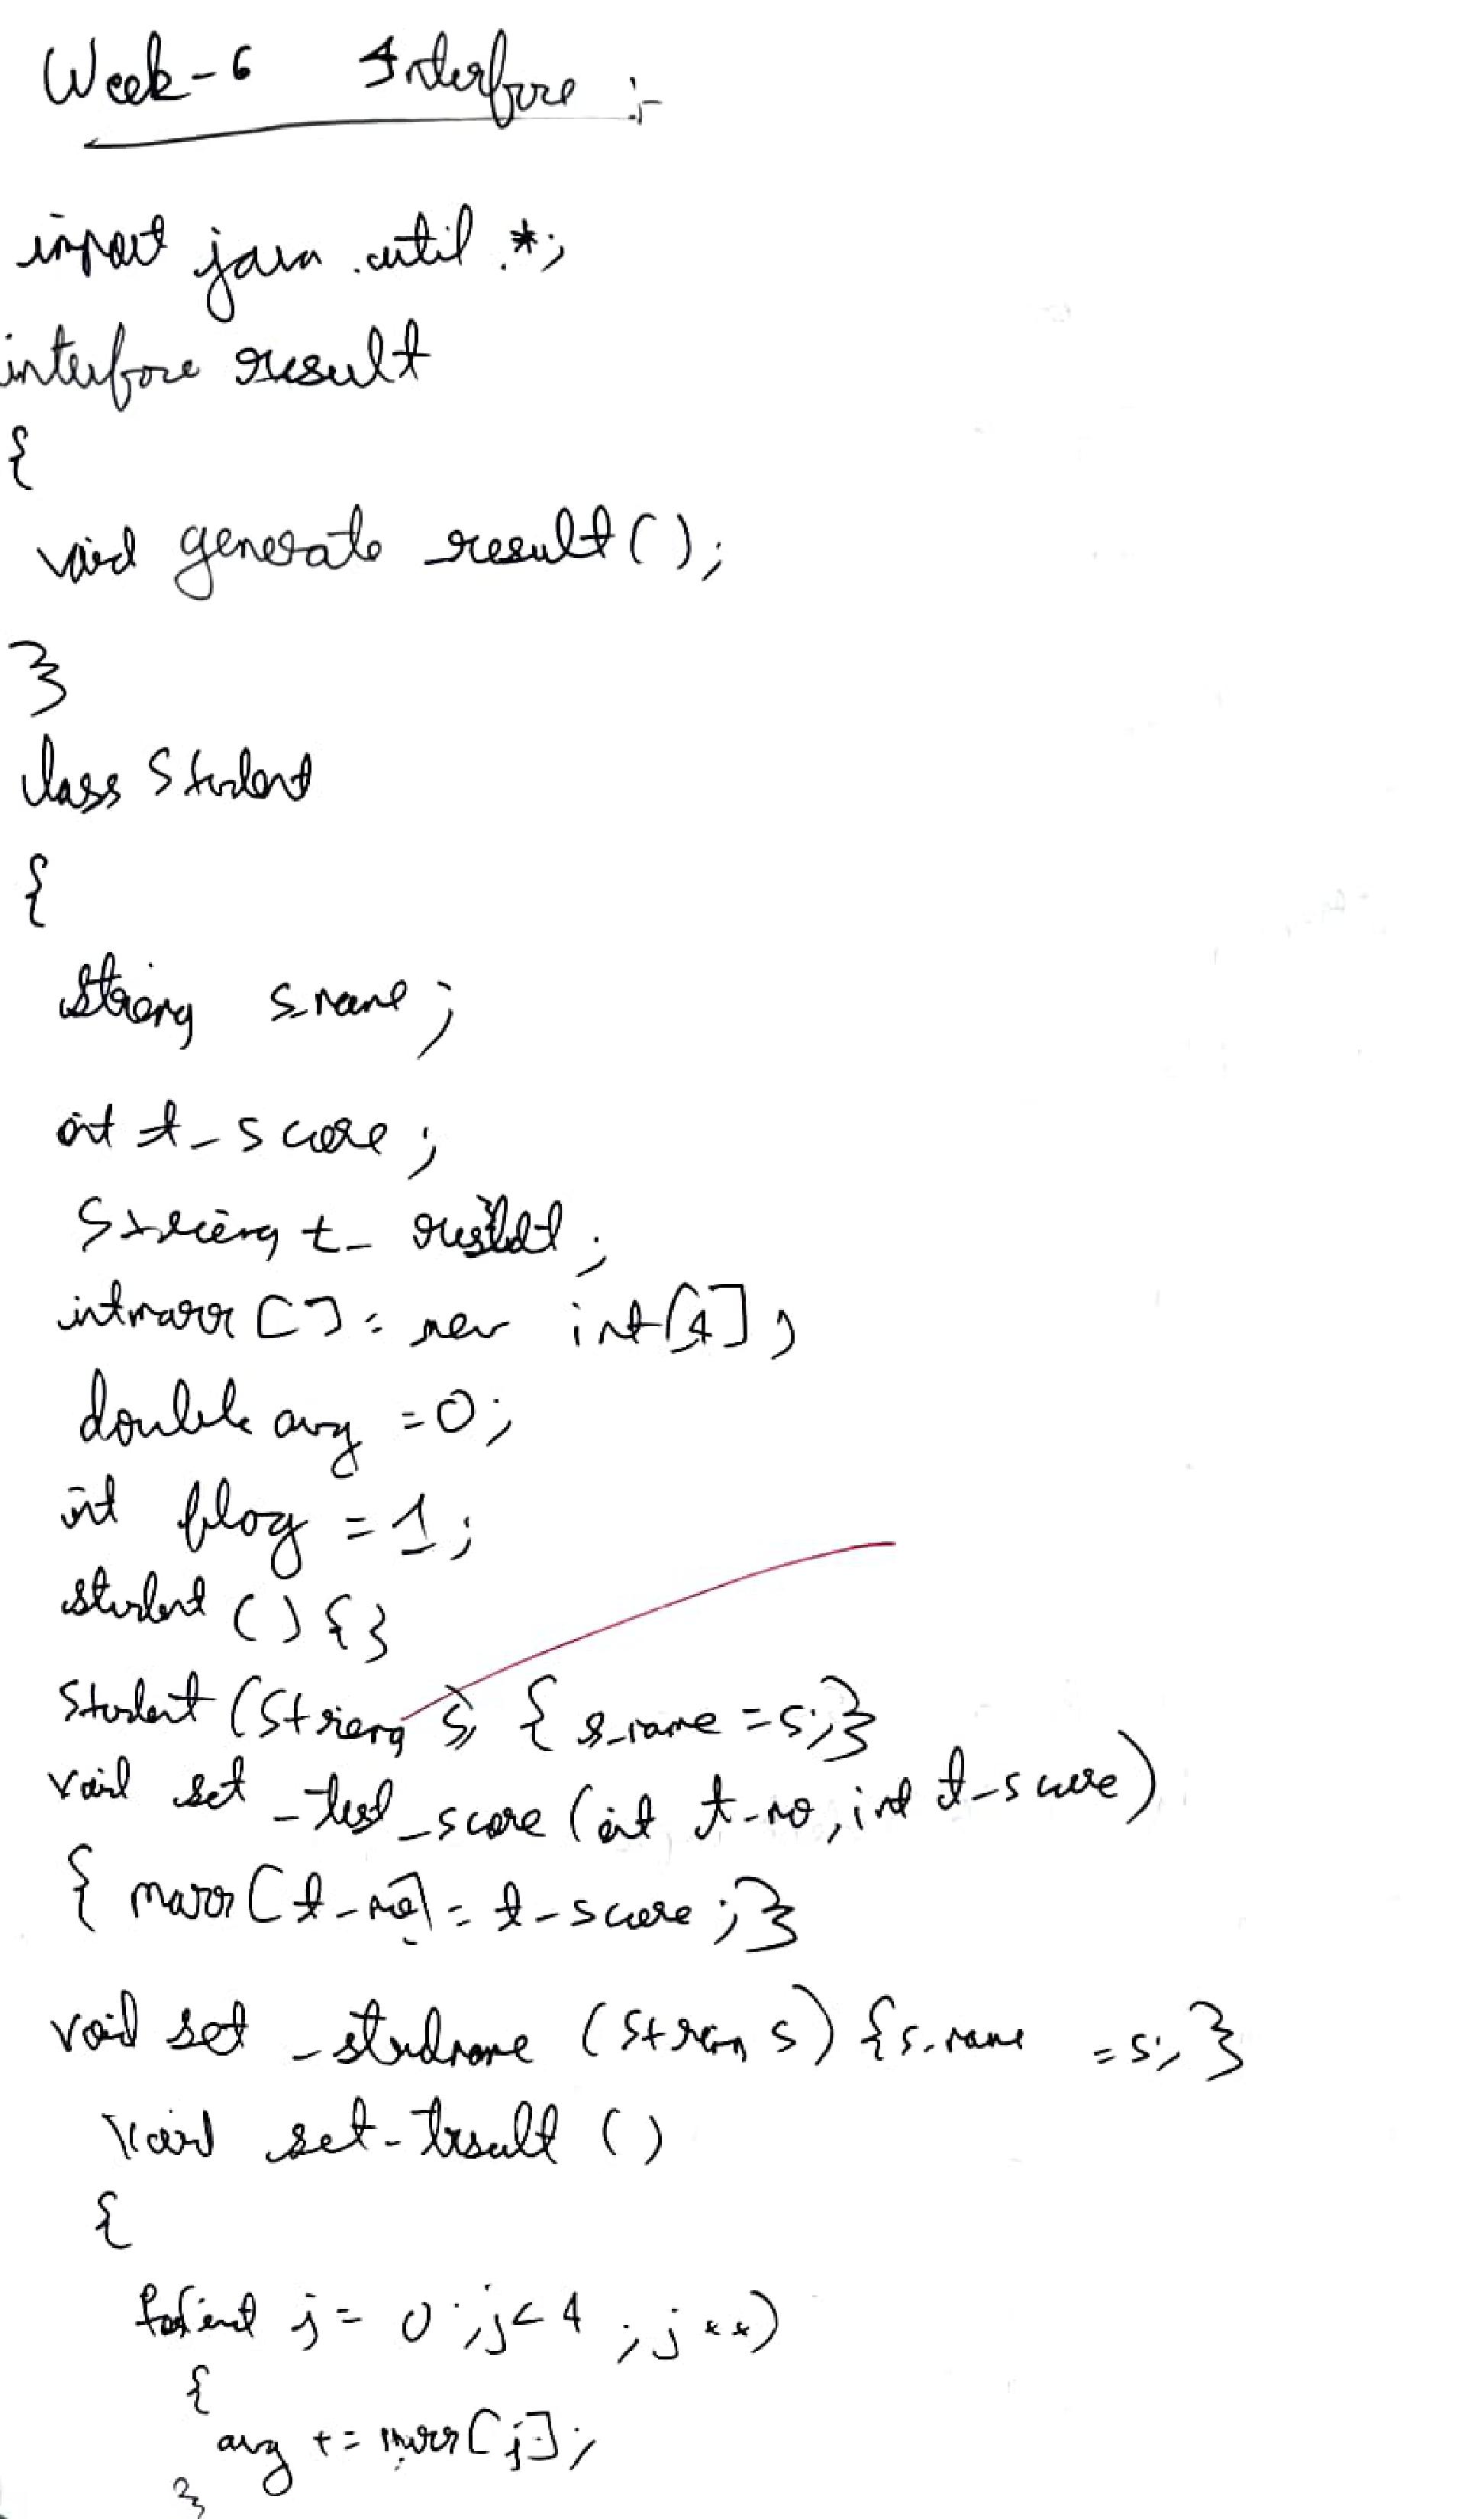 Week-6 Interface :-
import java.util.*;
interface result
{
void generate_result();
}
class Student
{
String s_name;
int t_score;
String t_result;
int marr[] = new int[4];
double avg = 0;
int flag = 1;
student () {}
Student (String s) { s_name = s;}
void set_test_score (int t_no, int t_score)
{ marr[t_no] = t_score;}
void set_studname (String s) {s_name = s;}
void set_tresult ()
{
for(int j = 0; j<4; j++)
{
avg += marr[j];
}